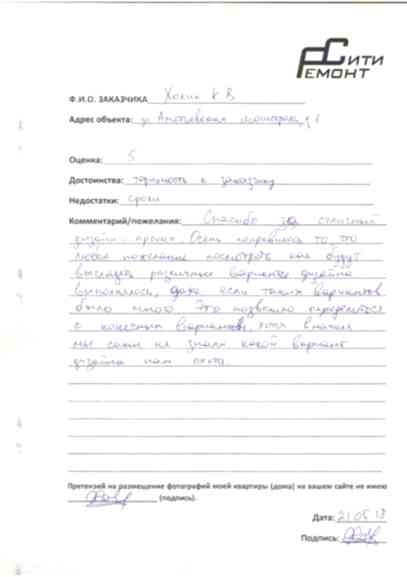 СИТИ
РЕМОНТ
Ф.И.О. ЗАКАЗЧИКА Хохин К В
Адрес объекта: у. Анатевская д 1
Оценка: 5
Достоинства: терпимость к заказчику
Недостатки: сроки
Комментарий/пожелания: Спасибо за отличный
дизайн-проект. Очень понравилось то, что
любое пожелание посмотреть как будут
выглядеть различные варианты дизайна
выполнялось, даже если таких вариантов
было много. Это позволило определиться
с конечным вариантом, хотя вначале
мы сами не знали какой вариант
дизайна нам охота.
Претензий на размещение фотографий моей квартиры (дома) на вашем сайте не имею
(подпись).
Дата: 21 05 13
Подпись: